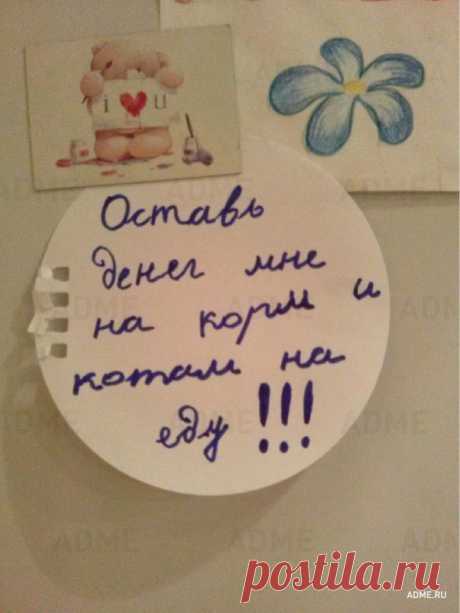 i ❤ u
Оставь
денег мне
на корм и
котам на
еду !!!
ADME
ADME
ADME
ADME
ADME
postila.ru
ADME.RU